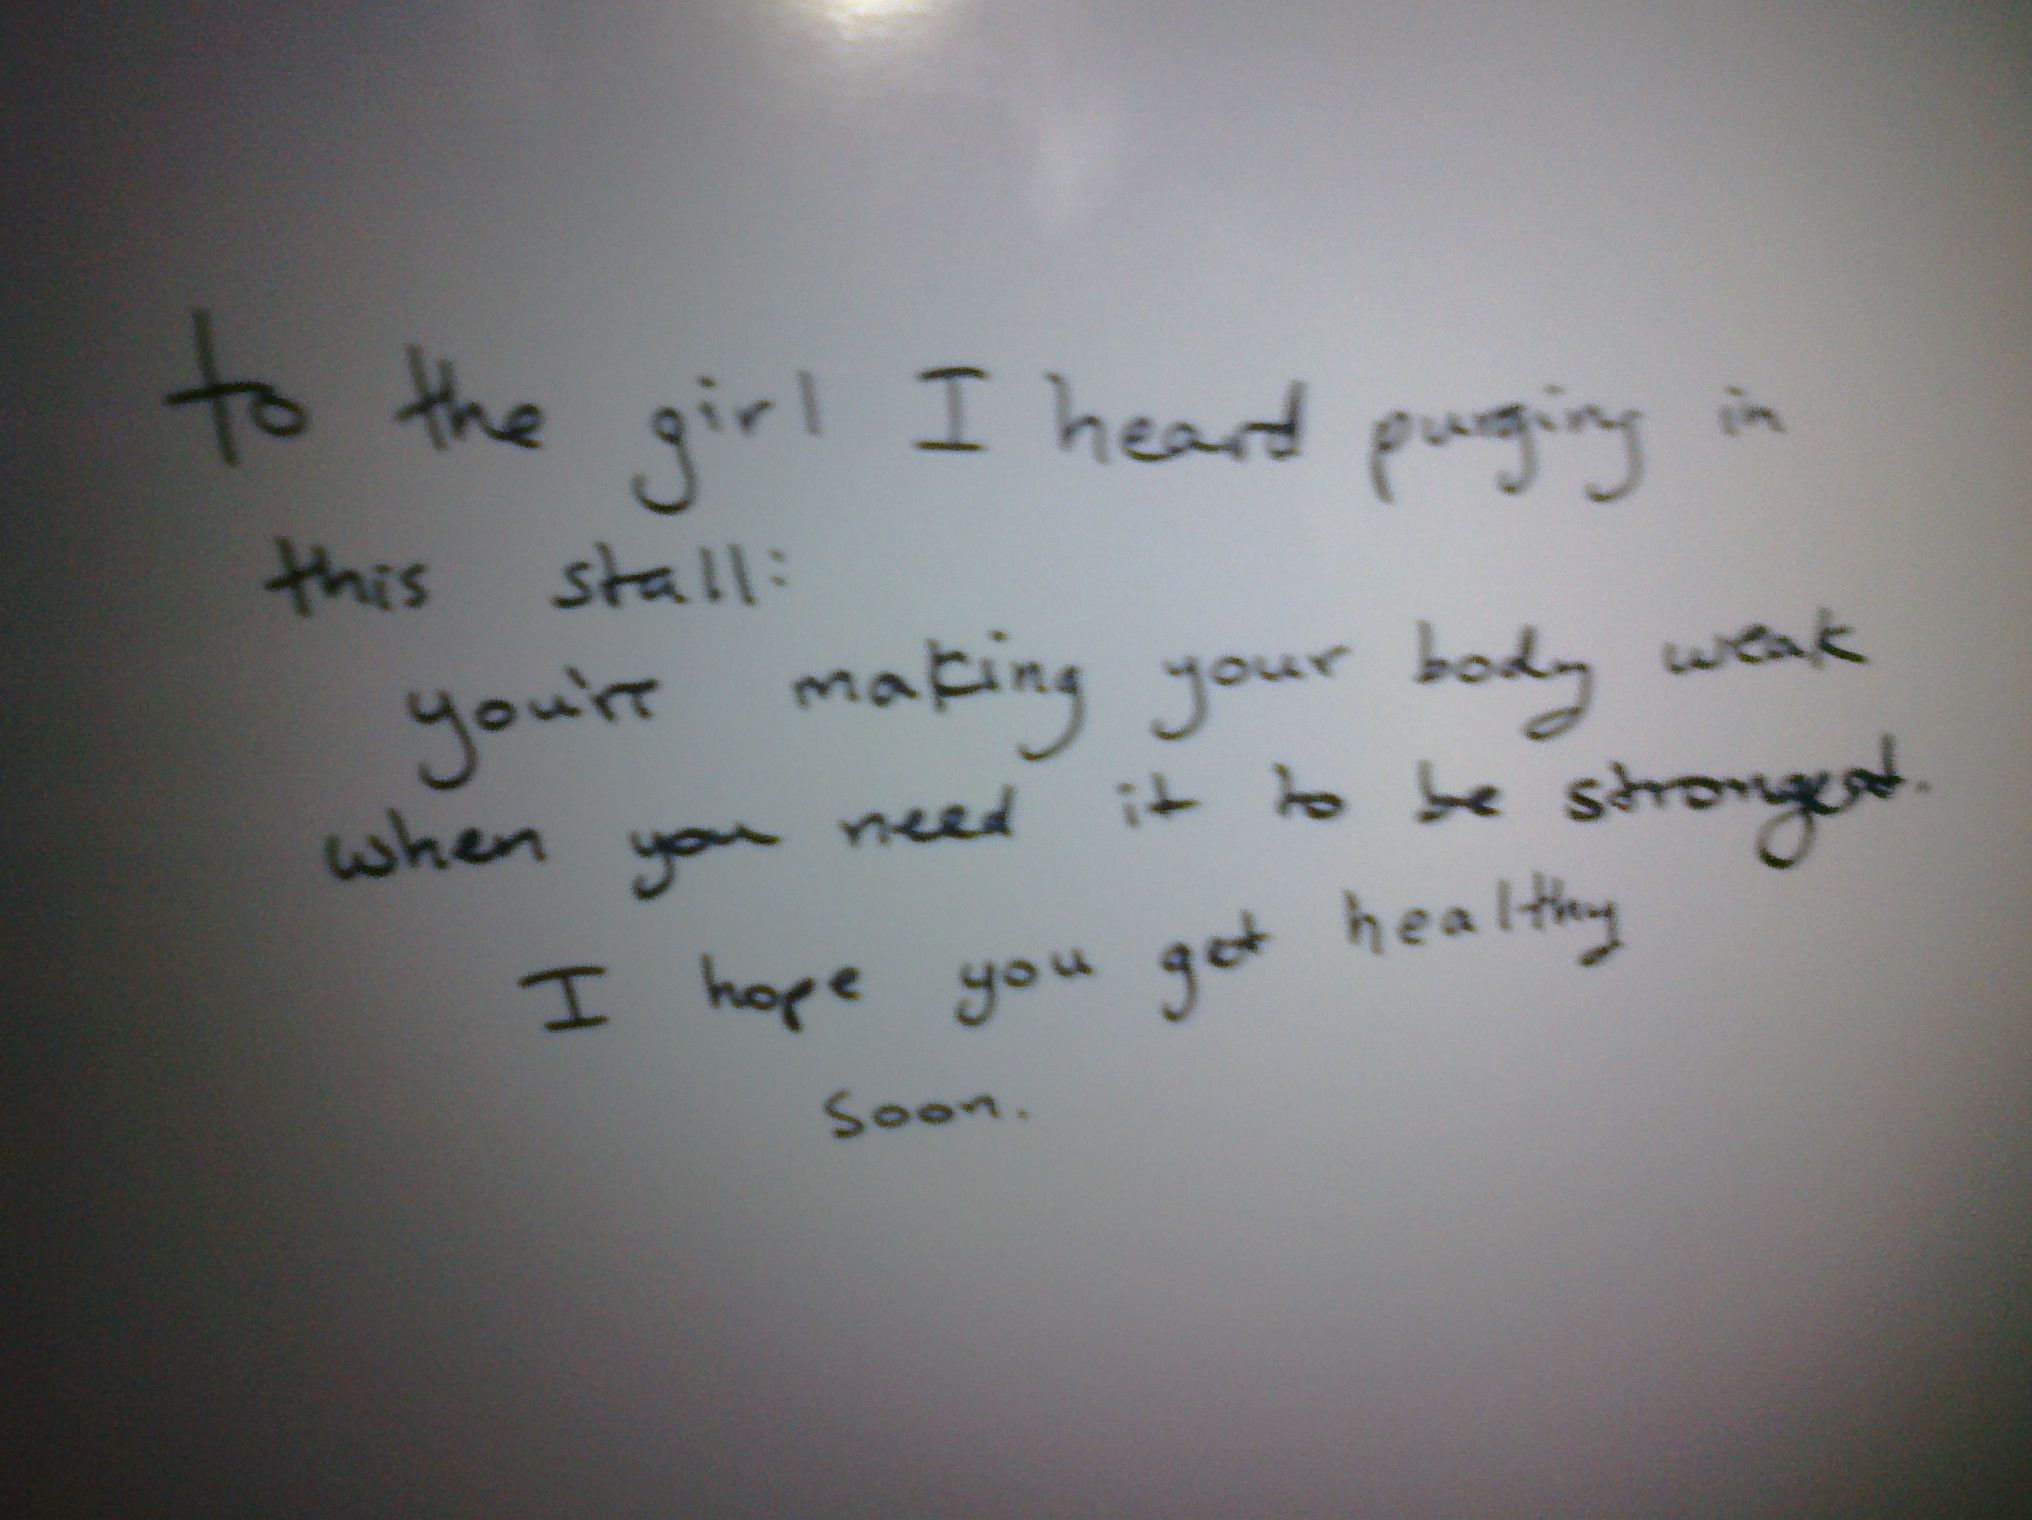 to the girl I heard purging in
this stall:
you're making your body weak
when you need it to be strongest.
I hope you get healthy
soon.